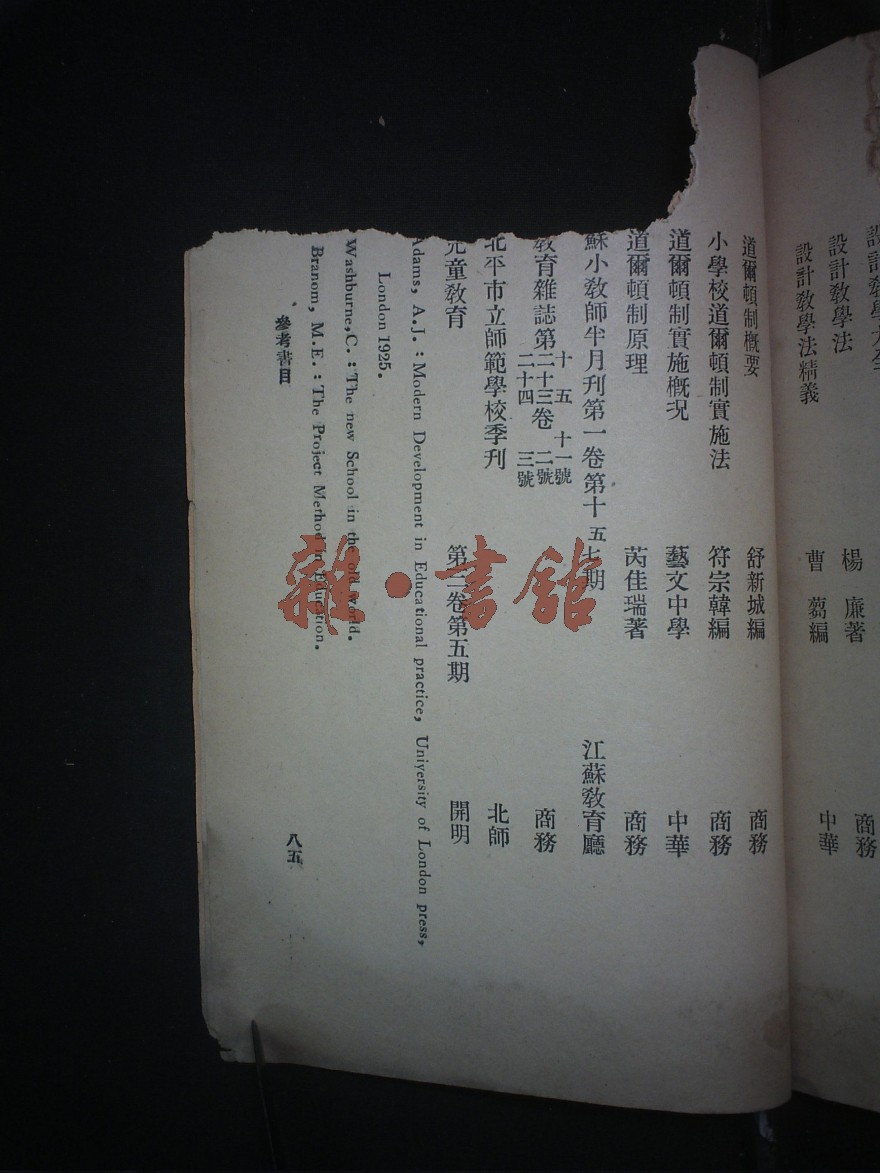 設計教學法 楊廉著 商務
設計教學法精義 曹芻編 中華
道爾頓制概要 舒新城編 商務
小學校道爾頓制實施法 符宗韓編 商務
道爾頓制實施概況 藝文中學 中華
道爾頓制原理 芮佳瑞著 商務
蘇小教師半月刊第一卷第十五七期 江蘇教育廳
教育雜誌第二十三卷 十五 二十四 十一號 二號 三號 商務
北平市立師範學校季刊 北師
兒童教育 第二卷第五期 開明
Adams, A.J. : Modern Development in Educational practice, University of London press,
London 1925.
Washburne, C. : The new School in the old world.
Branom, M.E. : The Project Method in Education.
參考書目
八五
雜·書館